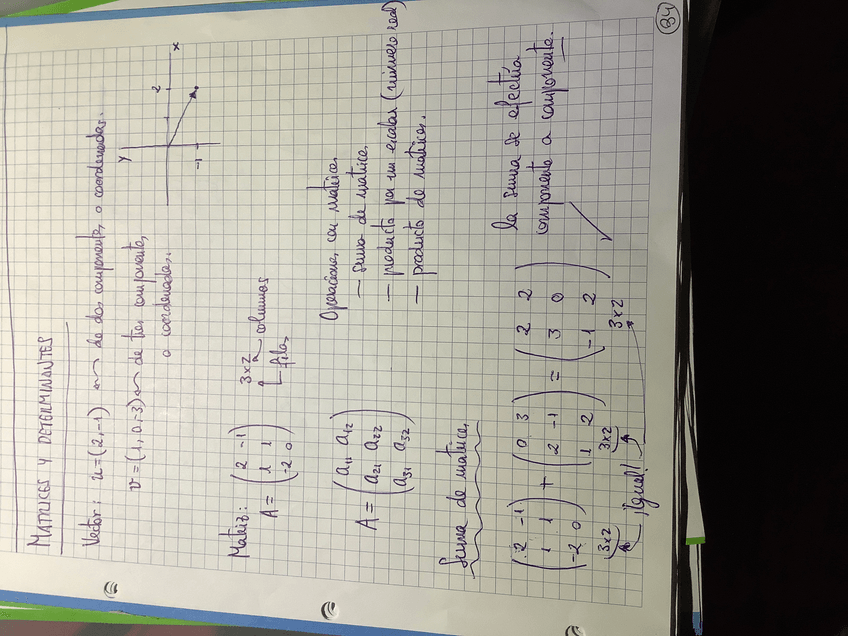 34
MATRICES Y DETERMINANTES
Vector: u = (2, -1) ~> de dos componentes o coordenadas.
v = (1, 0, -3) ~> de tres componentes,
o coordenadas.
y
x
2
-1
Matriz: A = ( 2 -1
1 1
-2 0 )
3x2
columnas
filas
A = ( a11 a12
a21 a22
a31 a32 )
Operaciones con matrices
— suma de matrices
— producto por un escalar (número real)
— producto de matrices.
Suma de matrices
( 2 -1
1 1
-2 0 ) + ( 0 3
2 -1
1 2 ) = ( 2 2
3 0
-1 2 ) ✓
3x2 3x2 3x2
¡Igual!
la suma se efectúa
componente a componente.